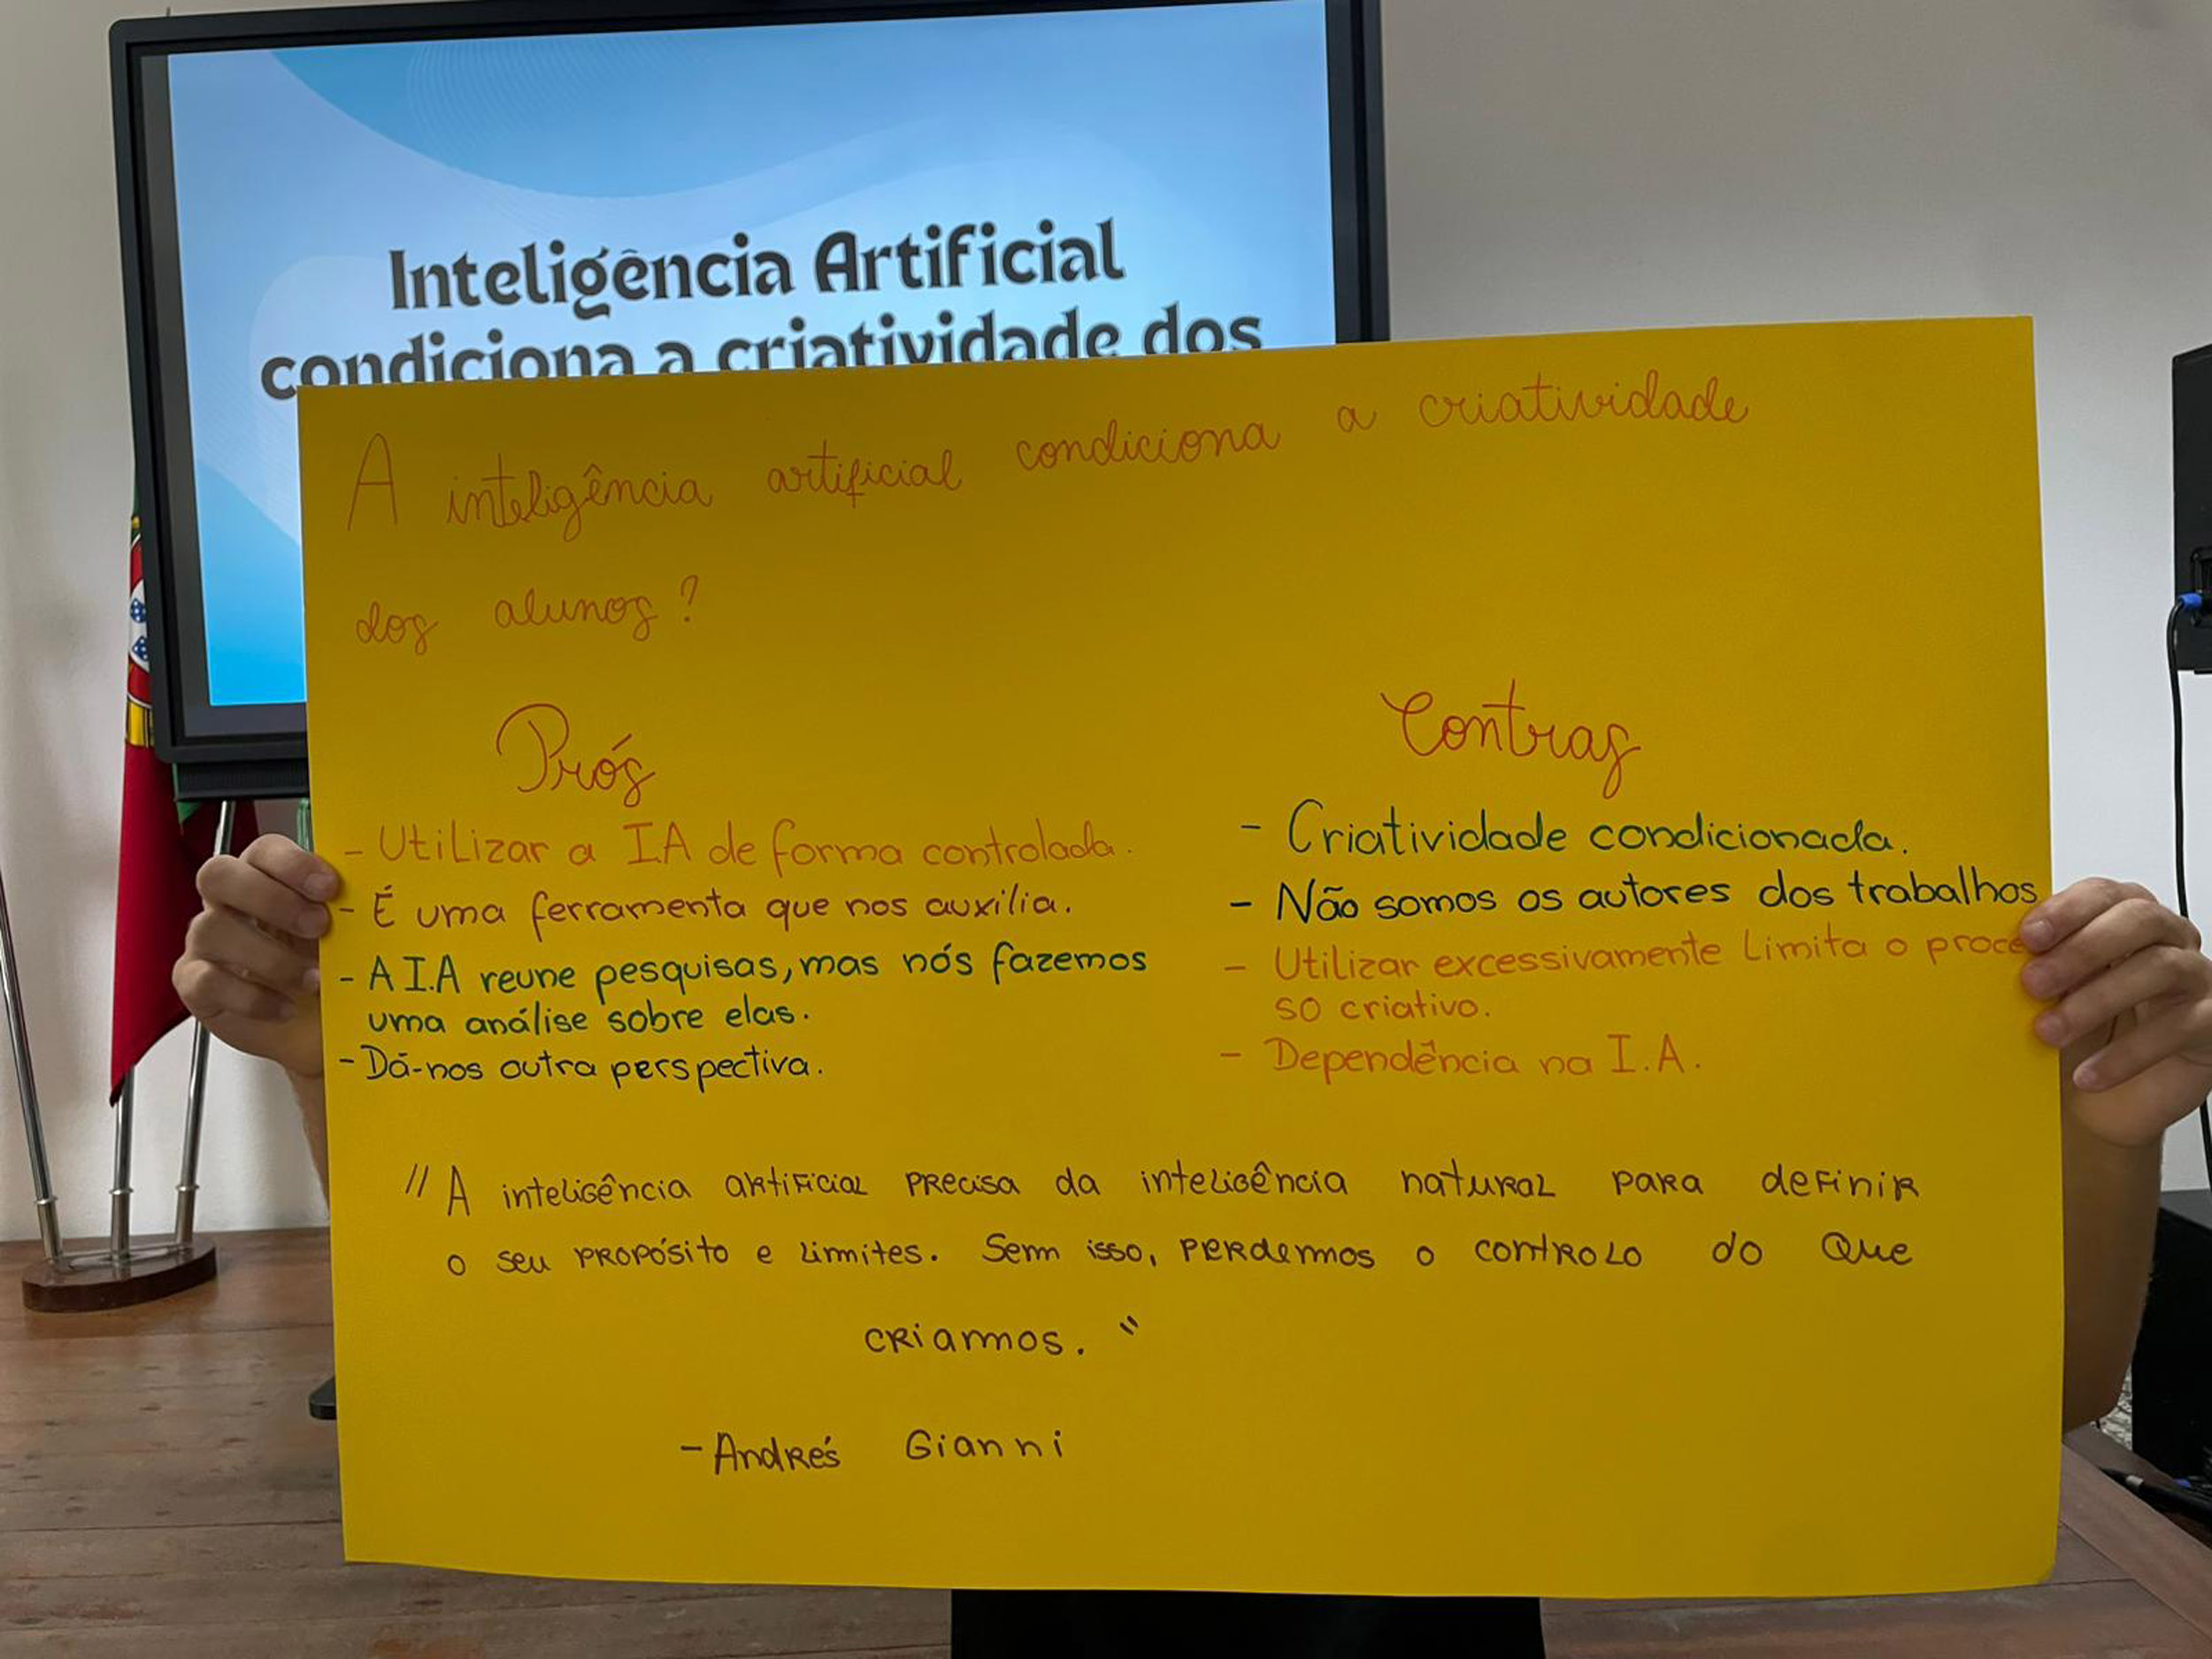 Inteligência Artificial
condiciona a criatividade dos
A inteligência artificial condiciona a criatividade
dos alunos?
Prós
- Utilizar a I.A de forma controlada.
- É uma ferramenta que nos auxilia.
- A I.A reune pesquisas, mas nós fazemos
uma análise sobre elas.
- Dá-nos outra perspectiva.
Contras
- Criatividade condicionada.
- Não somos os autores dos trabalhos
- Utilizar excessivamente limita o proce
so criativo.
- Dependência na I.A.
"A inteligência artificial precisa da inteligência natural para definir
o seu propósito e limites. Sem isso, perdemos o controlo do que
criamos."
- Andrés Gianni